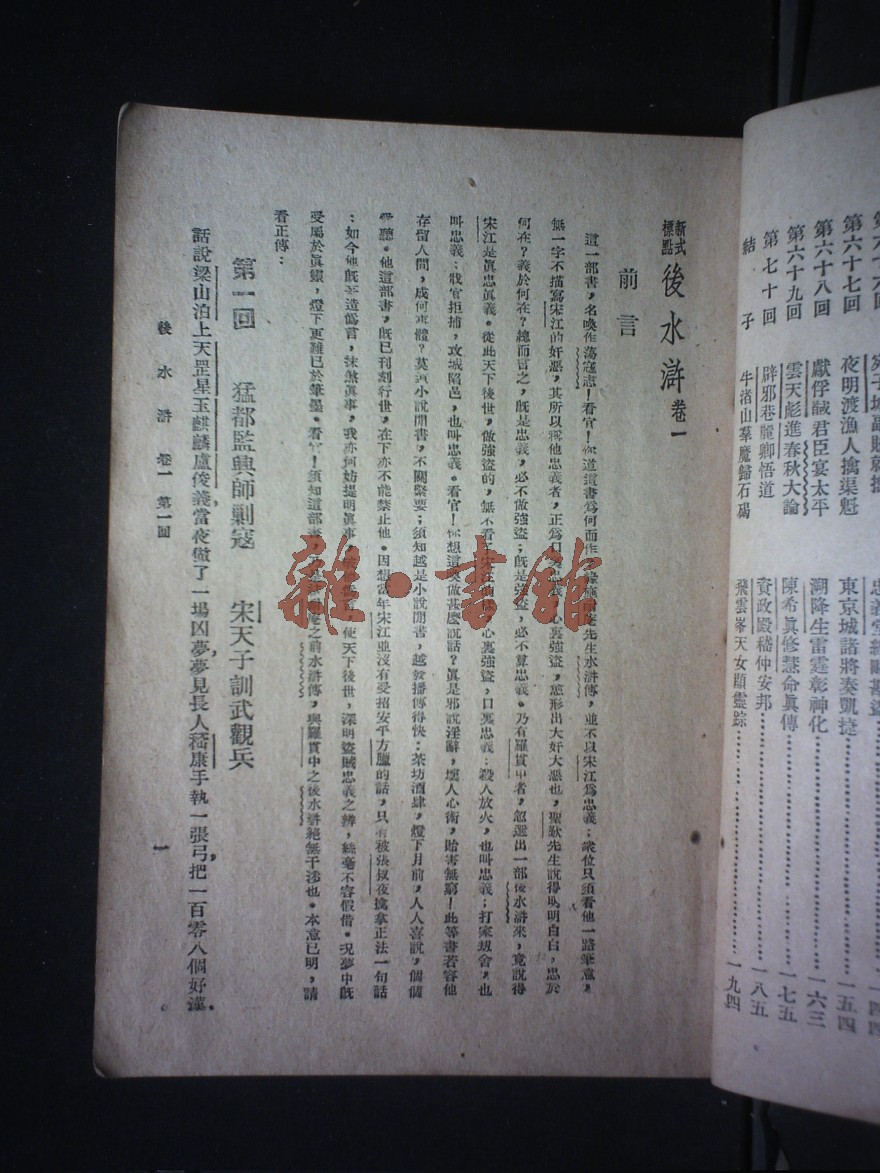 第六十七回 夜明渡漁人擒渠魁 東京城諸將奏凱捷 一五四
第六十八回 獻俘馘君臣宴太平 溯降生雷霆彰神化 一六三
第六十九回 雲天彪進春秋大論 陳希眞修慧命眞傳 一七五
第七十回 辟邪巷麗卿悟道 資政殿嵇仲安邦 一八五
結子 牛渚山羣魔歸石碣 飛雲峯天女顯靈踪 一九四
新式標點 後水滸 卷一
前言
這一部書，名喚作蕩寇志！看官！你道這書爲何而作？緣施耐庵先生水滸傳，並不以宋江爲忠義；衆位只須看他一路筆意，
無一字不描寫宋江的奸惡，其所以稱他忠義者，正爲口裏忠義，心裏強盜，愈形出大奸大惡也，聖歎先生說得明明白白，忠於
何在？義於何在？總而言之，既是忠義，必不做強盜；既是強盜，必不算忠義。乃有羅貫中者，忽選出一部後水滸來，竟說得
宋江是眞忠眞義。從此天下後世，做強盜的，無不看了宋江的樣，心裏強盜，口裏忠義；殺人放火，也叫忠義；打家刼舍，也
叫忠義；戕官拒捕，攻城陷邑，也叫忠義。看官！你想這喚做甚麽說話？眞是邪說淫辭，壞人心術，貽害無窮！此等書若容他
存留人間，成何事體？莫道小說閒書，不關緊要；須知越是小說閒書，越發播傳得快；茶坊酒肆，燈下月前，人人喜說，個個
愛聽。他這部書，既已刊刻行世，在下亦不能禁止他。因想當年宋江並沒有受招安平方臘的話，只有被張叔夜擒拿正法一句話
；如今他既妄造僞言，抹煞眞事，我亦何妨提明眞事，使天下後世，深明盜賊忠義之辨，絲毫不容假借。況夢中既
受屬於眞靈，燈下更難已於筆墨。看官！須知這部書，之前水滸傳，與羅貫中之後水滸絕無干涉也。本意已明，請
看正傳：
第一回 猛都監興師剿寇 宋天子訓武觀兵
話說梁山泊上天罡星玉麒麟盧俊義，當夜做了一場凶夢，夢見長人嵇康手執一張弓，把一百零八個好漢，
後水滸 卷一 第一回 一
雜·書館